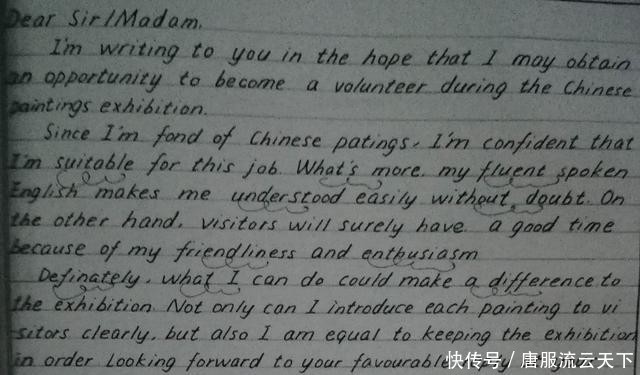 Dear Sir/Madam.
I'm writing to you in the hope that I may obtain
an opportunity to become a volunteer during the Chinese
paintings exhibition.
Since I'm fond of Chinese patings, I'm confident that
I'm suitable for this job. What's more, my fluent spoken
English makes me understood easily without doubt. On
the other hand, visitors will surely have a good time
because of my friendliness and enthusiasm
Definately, what I can do could make a difference to
the exhibition. Not only can I introduce each painting to vi
sitors clearly, but also I am equal to keeping the exhibition
in order Looking forward to your favourable
快传号 / 唐服流云天下